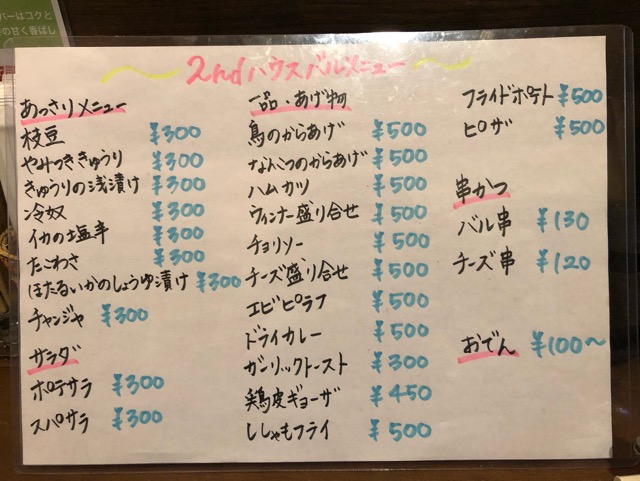 バーはコクと
の甘く香ばし
2ndハウスバルメニュー
あっさりメニュー
枝豆 ¥300
やみつききゅうり ¥300
きゅうりの浅漬け ¥300
冷奴 ¥300
イカの塩辛 ¥300
たこわさ ¥300
ほたるいかのしょうゆ漬け ¥300
チャンジャ ¥300
サラダ
ポテサラ ¥300
スパサラ ¥300
一品・あげ物
鳥のからあげ ¥500
なんこつのからあげ ¥500
ハムカツ ¥500
ウィンナー盛り合せ ¥500
チョリソー ¥500
チーズ盛り合せ ¥500
エビピラフ ¥500
ドライカレー ¥500
ガーリックトースト ¥300
鶏皮ギョーザ ¥450
ししゃもフライ ¥500
フライドポテト ¥500
ピザ ¥500
串かつ
バル串 ¥130
チーズ串 ¥120
おでん ¥100〜